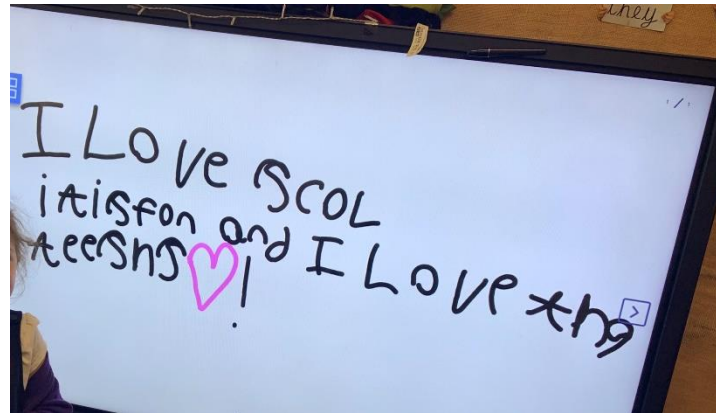 they
I LOVE SCOL
itisfon and I LOVE the
teeshs♡!